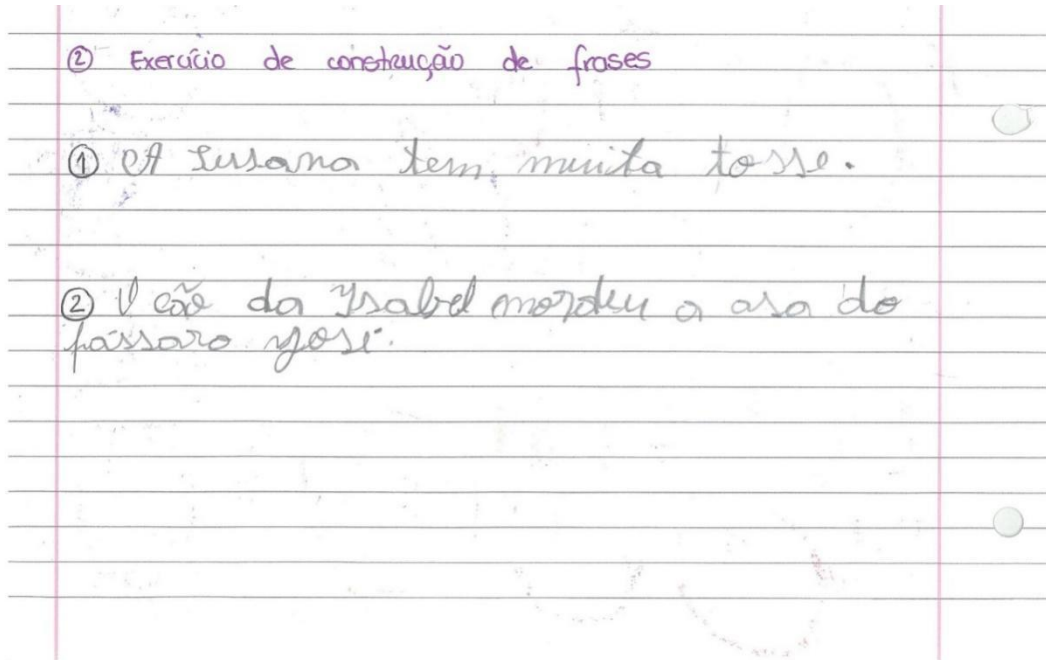 ② Exercício de construção de frases
① A Susana tem muita tosse.
② O cão da Isabel mordeu a asa do
pássaro José.